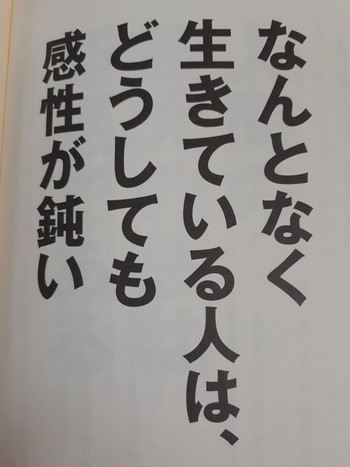 なんとなく
生きている人は、
どうしても
感性が鈍い